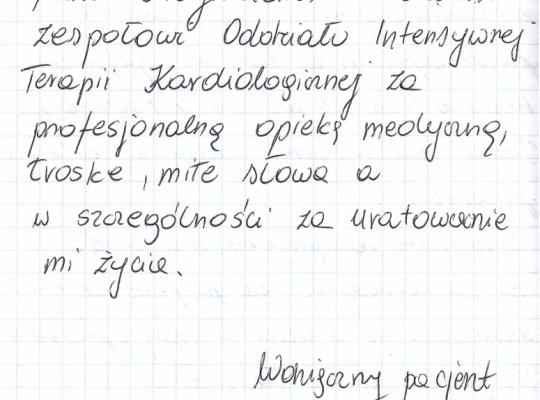 zespołowi Oddziału Intensywnej
Terapii Kardiologicznej za
profesjonalną opiekę medyczną,
troskę, miłe słowa a
w szczególności za uratowanie
mi życia.
pacjent